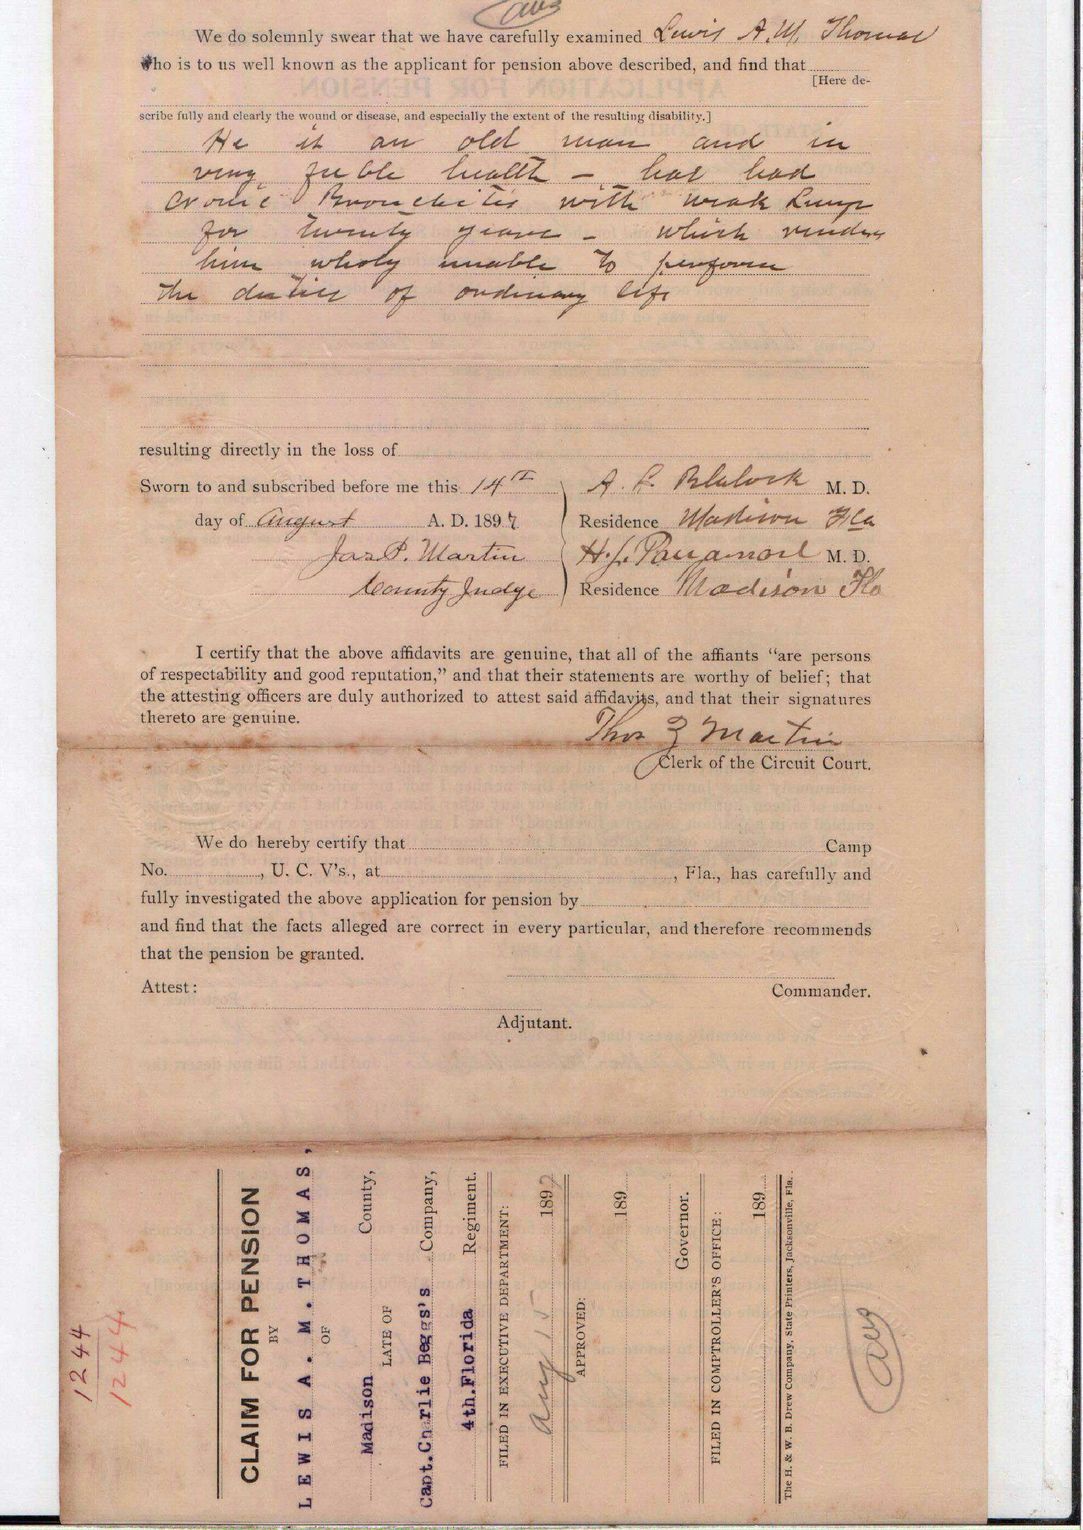 ans
We do solemnly swear that we have carefully examined Lewis A. M. Thomas
who is to us well known as the applicant for pension above described, and find that
[Here de-
scribe fully and clearly the wound or disease, and especially the extent of the resulting disability.]
He is an old man and in
very feeble health – has had
cronic Bronchitis with weak Lungs
for twenty years – which renders
him wholy unable to perform
the duties of ordinary life
resulting directly in the loss of
Sworn to and subscribed before me this 14th
day of August A. D. 1897
Jas P. Martin
County Judge
A. L. Blalock M. D.
Residence Madison Fla
H. J. Parramore M. D.
Residence Madison Fla
I certify that the above affidavits are genuine, that all of the affiants “are persons
of respectability and good reputation,” and that their statements are worthy of belief; that
the attesting officers are duly authorized to attest said affidavits, and that their signatures
thereto are genuine.
Thos Z Martin
Clerk of the Circuit Court.
We do hereby certify that Camp
No. , U. C. V's., at , Fla., has carefully and
fully investigated the above application for pension by
and find that the facts alleged are correct in every particular, and therefore recommends
that the pension be granted.
Attest:
Commander.
Adjutant.
1244
1244
CLAIM FOR PENSION
BY
LEWIS A. M. THOMAS,
OF
Madison County,
LATE OF
Capt. Charlie Beggs's Company,
4th. Florida Regiment.
FILED IN EXECUTIVE DEPARTMENT:
Aug 15 1897
APPROVED:
189
Governor.
FILED IN COMPTROLLER'S OFFICE:
189
The H. & W. B. Drew Company, State Printers, Jacksonville, Fla.
ans